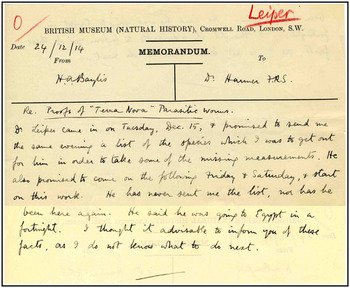 O
Leiper
BRITISH MUSEUM (NATURAL HISTORY), CROMWELL ROAD, LONDON, S.W.
Date 24/12/14
MEMORANDUM.
From
To
H A Baylis
Dr. Harmer F.R.S.
Re. Proofs of "Terra Nova" Parasitic Worms.
Dr Leiper came in on Tuesday, Dec. 15, & promised to send me
the same evening a list of the species which I was to get out
for him in order to take some of the missing measurements. He
also promised to come on the following Friday & Saturday, & start
on this work. He has never sent me the list, nor has he
been here again. He said he was going to Egypt in a
fortnight. I thought it advisable to inform you of these
facts, as I do not know what to do next.